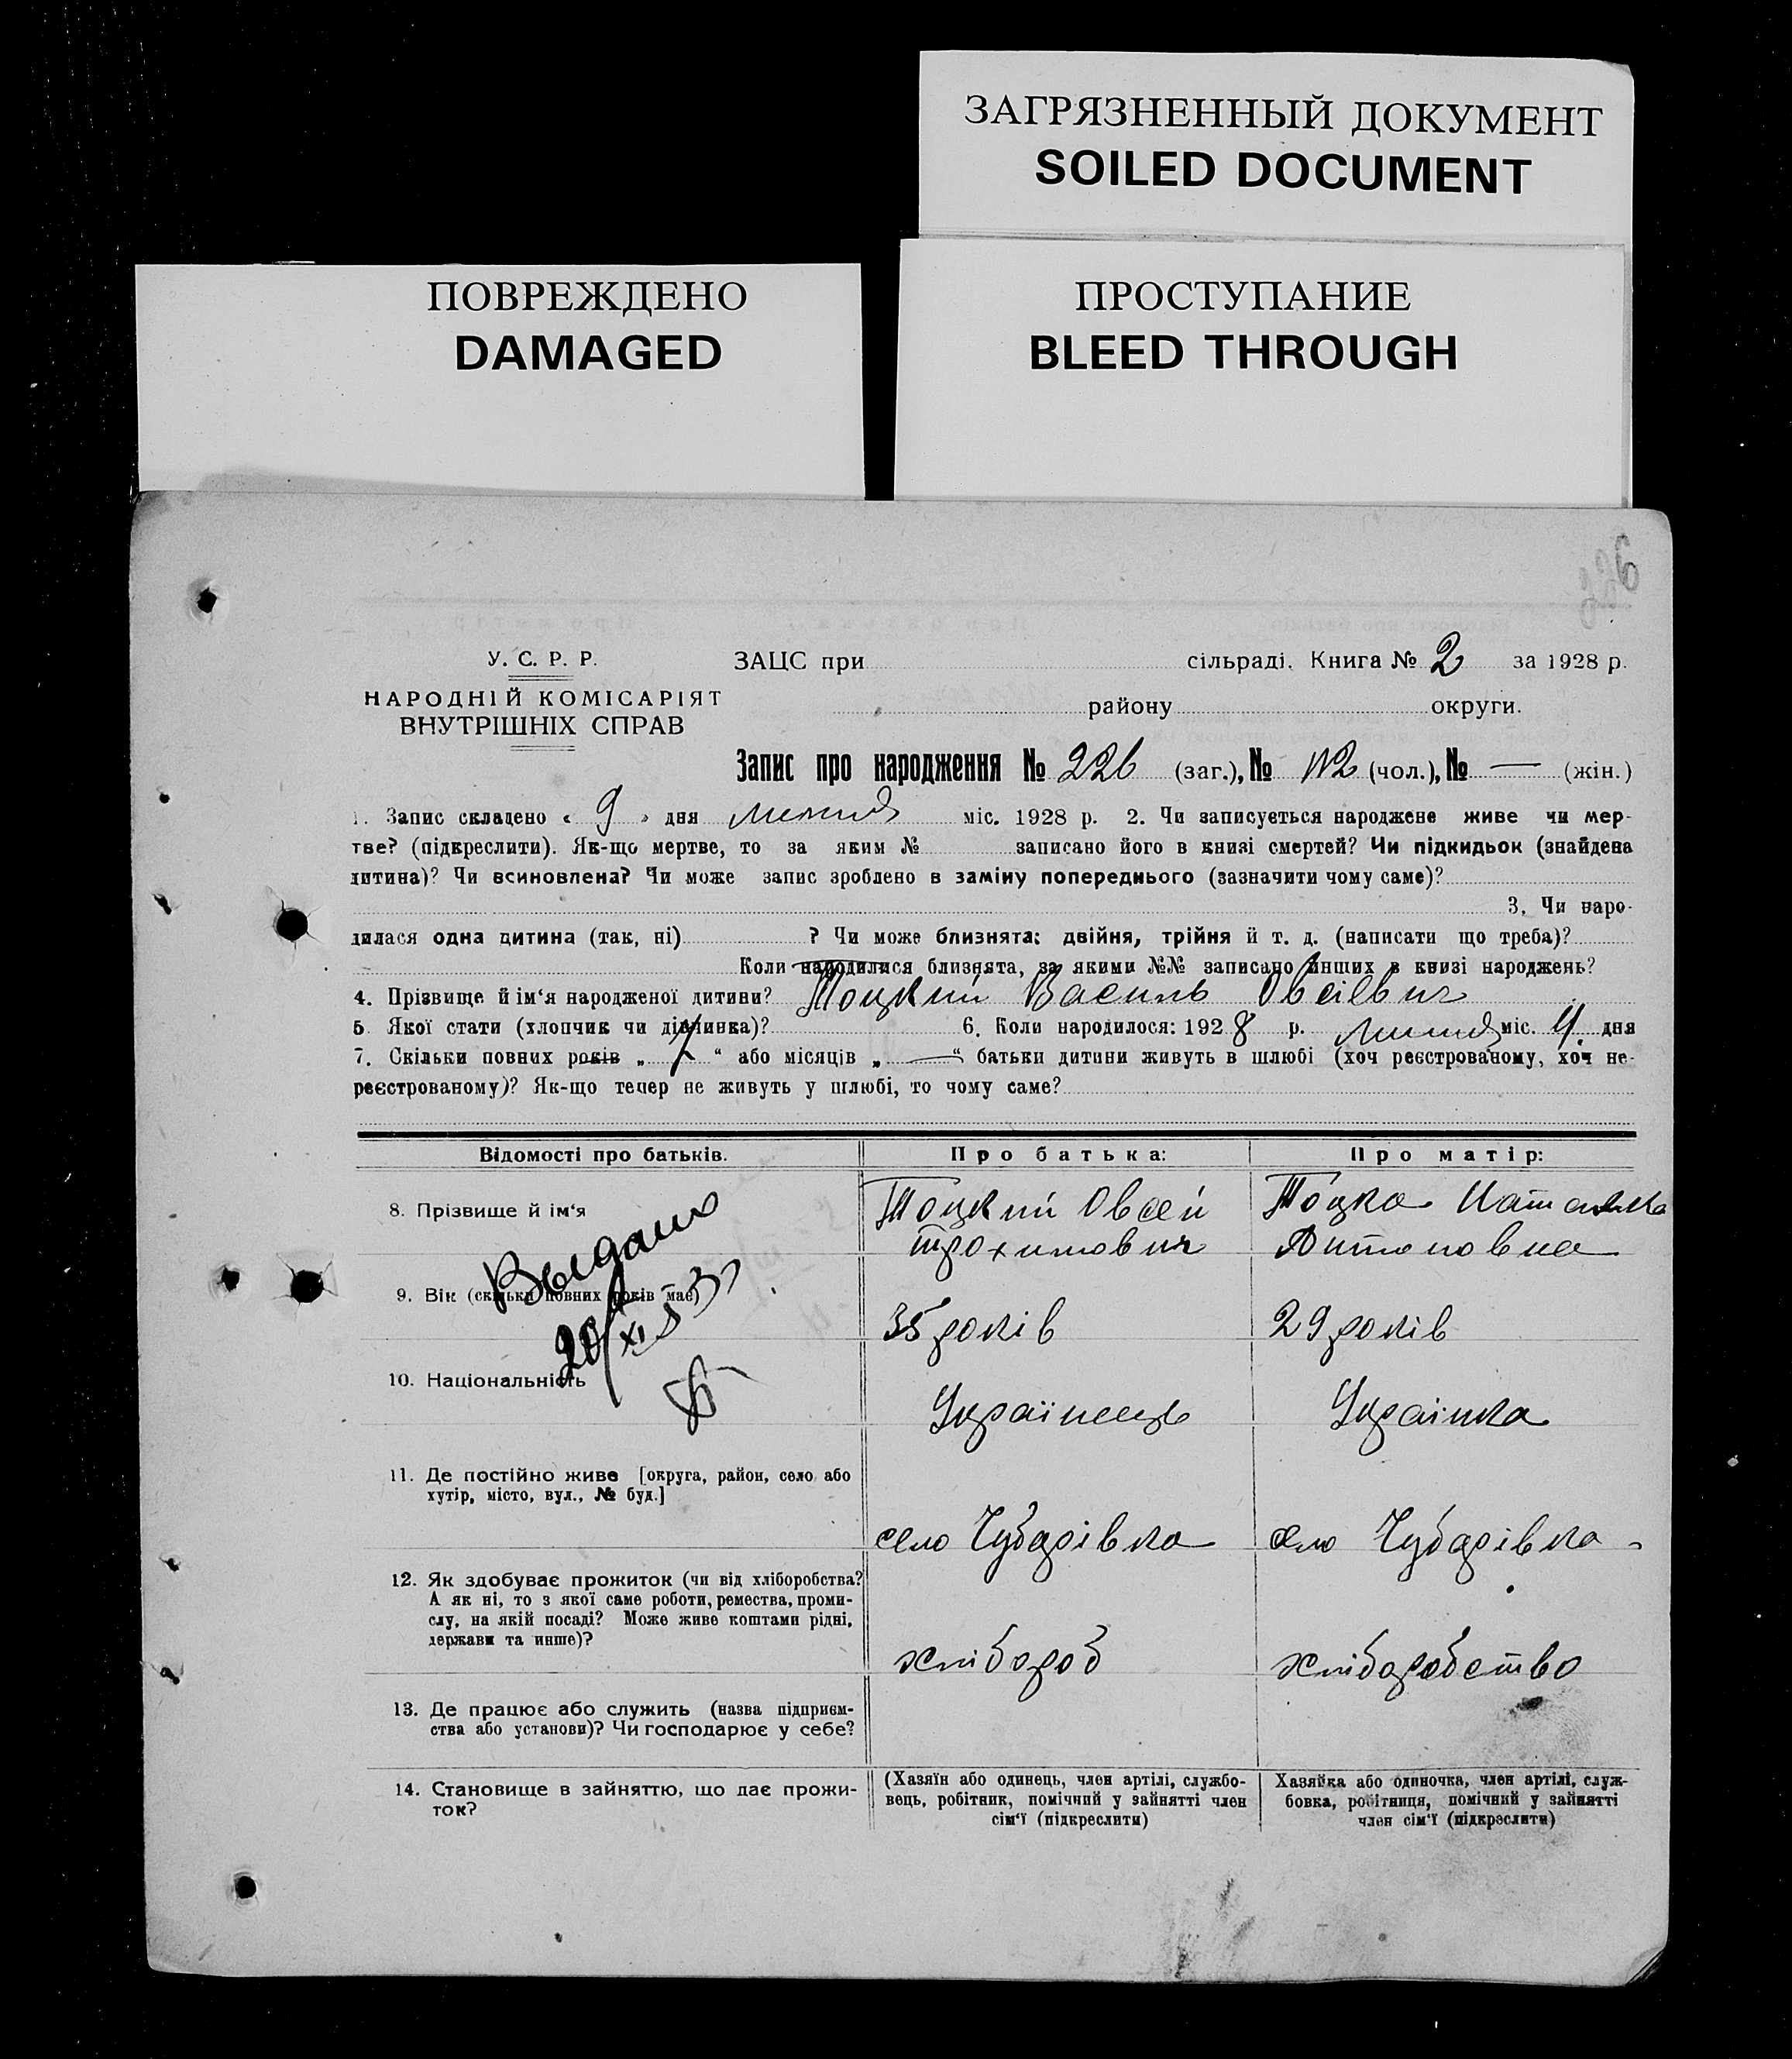 ЗАГРЯЗНЕННЫЙ ДОКУМЕНТ
SOILED DOCUMENT
ПОВРЕЖДЕНО
DAMAGED
ПРОСТУПАНИЕ
BLEED THROUGH
У. С. Р. Р.
НАРОДНІЙ КОМІСАРІЯТ
ВНУТРІШНІХ СПРАВ
ЗАЦС при сільраді. Книга № 2 за 1928 р.
району округи.
Запис про народження № 226 (заг.), № 112 (чол.), № — (жін.)
1. Запис складено « 9 » дня липня міс. 1928 р. 2. Чи записується народжене живе чи мер-
тве? (підкреслити). Як-що мертве, то за яким № записано його в книзі смертей? Чи підкидьок (знайдена
дитина)? Чи всиновлена? Чи може запис зроблено в заміну попереднього (зазначити чому саме)?
3. Чи наро-
дилася одна дитина (так, ні) ? Чи може близнята: двійня, трійня й т. д. (написати що треба)?
Коли народилися близнята, за якими №№ записано инших в книзі народжень?
4. Прізвище й ім‘я народженої дитини? Тоцкий Василь Овсієвич
5 Якої стати (хлопчик чи дівчинка)? 6. Коли народилося: 1928 р. липня міс. 4. дня
7. Скільки повних років „ “ або місяців „ — “ батьки дитини живуть в шлюбі (хоч реєстрованому, хоч не-
реєстрованому)? Як-що тепер не живуть у шлюбі, то чому саме?
Відомості про батьків.
Про батька:
Про матір:
8. Прізвище й ім‘я
Тоцкий Овсей
Трохимович
Тоцка Наталка
Антоновна
Выдано
20/XI
9. Він (скільки повних років має)
35 років
29 років
10. Національність
Українець
Українка
11. Де постійно живе [округа, район, село або
хутір, місто, вул., № буд.]
село Чубарівка
село Чубарівка
12. Як здобуває прожиток (чи від хліборобства?
А як ні, то з якої саме роботи, ремества, проми-
слу, на якій посаді? Може живе коштами рідні,
держави та инше)?
хлібороб
хліборобство
13. Де працює або служить (назва підприєм-
ства або установи)? Чи господарює у себе?
14. Становище в зайняттю, що дає прожи-
ток?
(Хазяїн або одинець, член артілі, службо-
вець, робітник, помічний у зайнятті член
сім‘ї (підкреслити)
Хазяйка або одиночка, член артілі, служ-
бовка, робітниця, помічний у зайнятті
член сім‘ї (підкреслити)